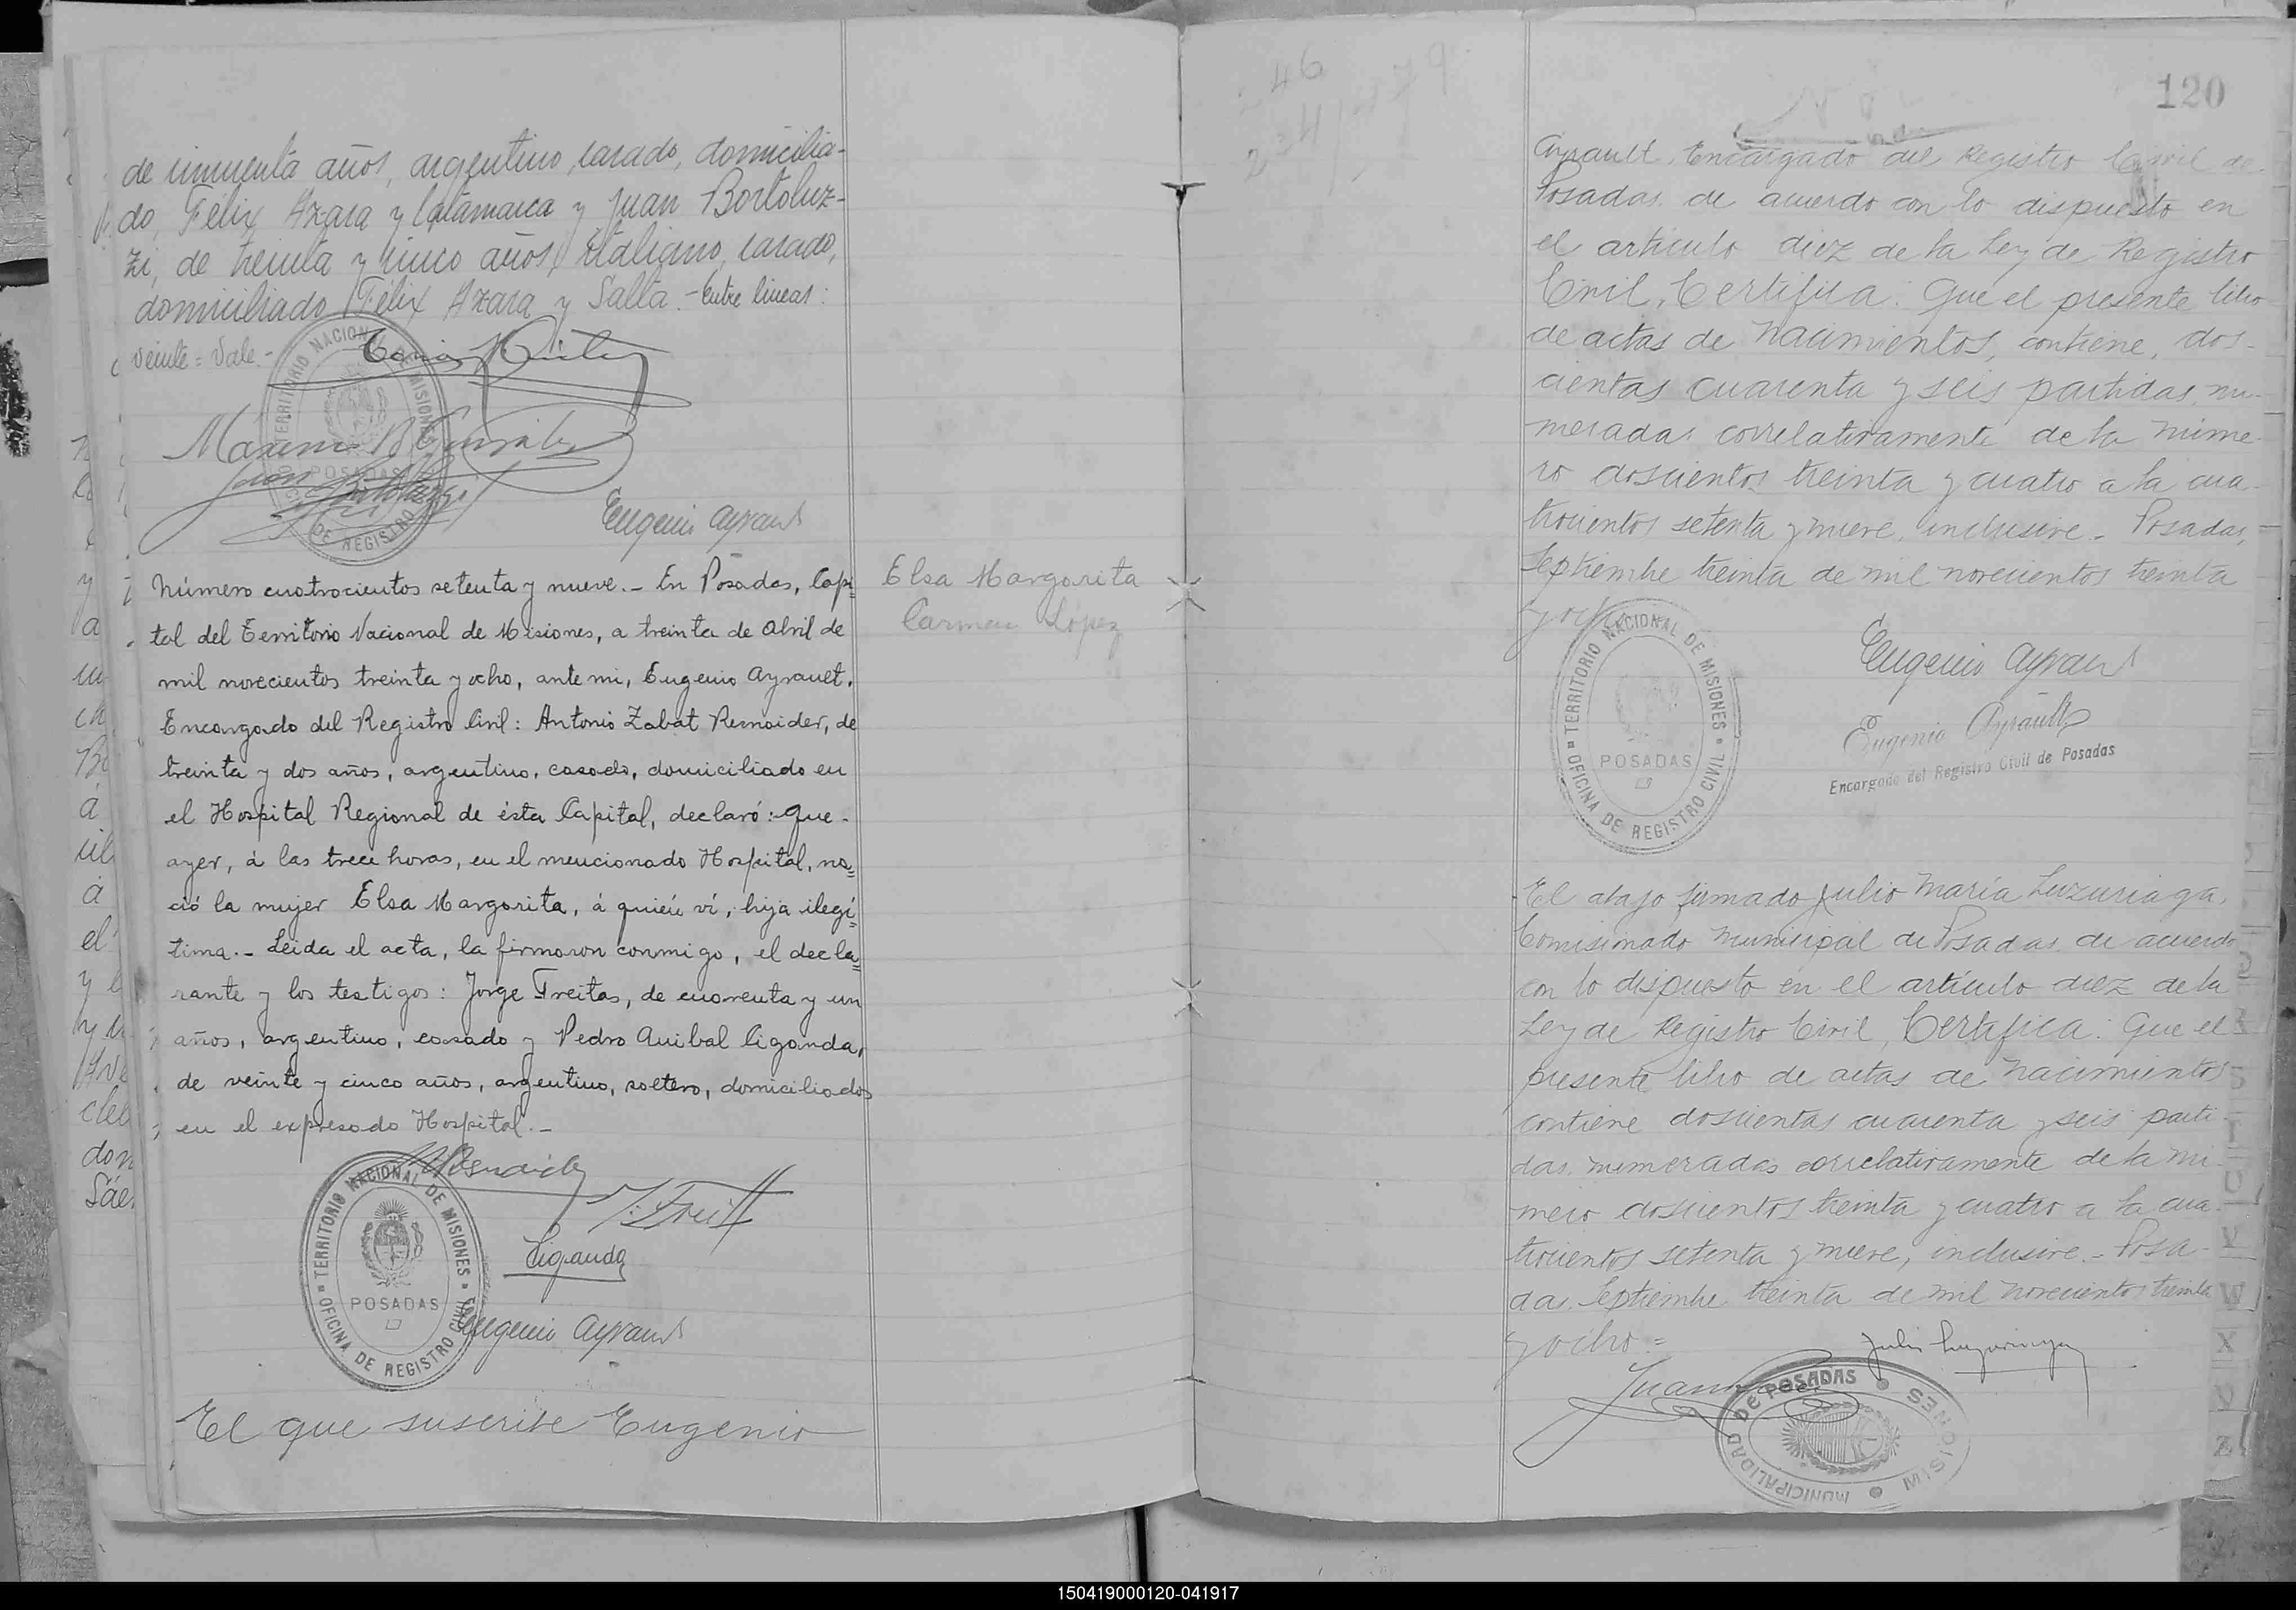 de cincuenta años, argentino, casado, domicilia-
do, Félix Azara y Catamarca y Juan Bortoluz-
zi, de treinta y cinco años, italiano, casado,
domiciliado Félix Azara y Salta.- Entre lineas:
veinte = Vale.-
TERRITORIO NACIONAL DE MISIONES
POSADAS
DE REGISTRO
Eugenio Ayrault
Número cuatrocientos setenta y nueve.- En Posadas, Capi=
tal del Territorio Nacional de Misiones, a treinta de Abril de
mil novecientos treinta y ocho, ante mi, Eugenio Ayrault.
Encargado del Registro Civil: Antonio Zabat Rernaider, de
treinta y dos años, argentino, casado, domiciliado en
el Hospital Regional de ésta Capital, declaró: que-
ayer, á las trece horas, en el mencionado Hospital, na=
ció la mujer Elsa Margarita, á quién ví, hija ilegí=
tima.- Leida el acta, la firmaron conmigo, el decla=
rante y los testigos: Jorge Freitas, de cuarenta y un
años, argentino, casado y Pedro Anibal Ciganda,
de veinte y cinco años, argentino, soltero, domiciliados
en el expresado Hospital.-
Elsa Margarita
Carmen López
TERRITORIO NACIONAL DE MISIONES
POSADAS
OFICINA DE REGISTRO CIVIL
Ciganda
Eugenio Ayrault
El que suscribe Eugenio
46
120
Ayrault, Encargado del Registro Civil de
Posadas, de acuerdo con lo dispuesto en
el artículo diez de la Ley de Registro
Civil, Certifica: Que el presente libro
de actas de nacimientos, contiene, dos-
cientas cuarenta y seis partidas, nu-
meradas correlativamente de la núme-
ro doscientos treinta y cuatro a la cua-
trocientos setenta y nueve, inclusive.- Posadas,
Septiembre treinta de mil novecientos treinta
y ocho
TERRITORIO NACIONAL DE MISIONES
POSADAS
OFICINA DE REGISTRO CIVIL
Eugenio Ayrault
Eugenio Ayrault
Encargado del Registro Civil de Posadas
El abajo firmado Julio María Luzuriaga,
Comisionado Municipal de Posadas de acuerdo
con lo dispuesto en el artículo diez de la
Ley de Registro Civil, Certifica: Que el
presente libro de actas de nacimientos
contiene doscientas cuarenta y seis parti-
das, numeradas correlativamente de la nú-
mero doscientos treinta y cuatro a la cua-
trocientos setenta y nueve, inclusive.- Posa-
das, Septiembre treinta de mil novecientos treinta
y ocho =
Julio Luzuriaga
MUNICIPALIDAD DE POSADAS
MISIONES
V
W
X
Z
150419000120-041917